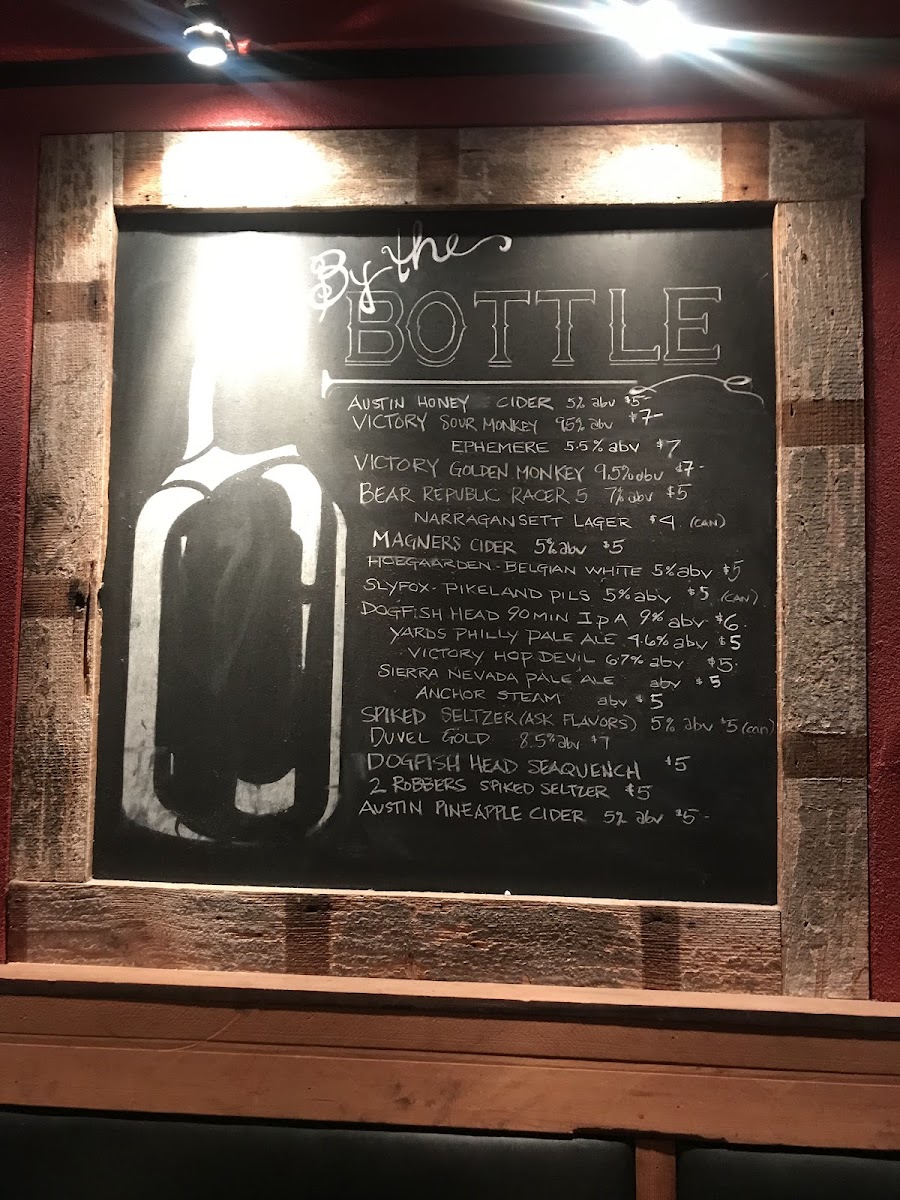 By the
BOTTLE
AUSTIN HONEY CIDER 5% abv $5-
VICTORY SOUR MONKEY 9.5% abv $7-
EPHEMERE 5.5% abv $7
VICTORY GOLDEN MONKEY 9.5% abv $7-
BEAR REPUBLIC RACER 5 7% abv $5
NARRAGANSETT LAGER $4 (CAN)
MAGNERS CIDER 5% abv $5
HOEGAARDEN-BELGIAN WHITE 5% abv $5
SLYFOX-PIKELAND PILS 5% abv $5 (CAN)
DOGFISH HEAD 90 MIN IPA 9% abv $6
YARDS PHILLY PALE ALE 4.6% abv $5
VICTORY HOP DEVIL 6.7% abv $5
SIERRA NEVADA PALE ALE abv $5
ANCHOR STEAM abv $5
SPIKED SELTZER (ASK FLAVORS) 5% abv $5 (can)
DUVEL GOLD 8.5% abv $7
DOGFISH HEAD SEAQUENCH $5
2 ROBBERS SPIKED SELTZER $5
AUSTIN PINEAPPLE CIDER 5% abv $5-